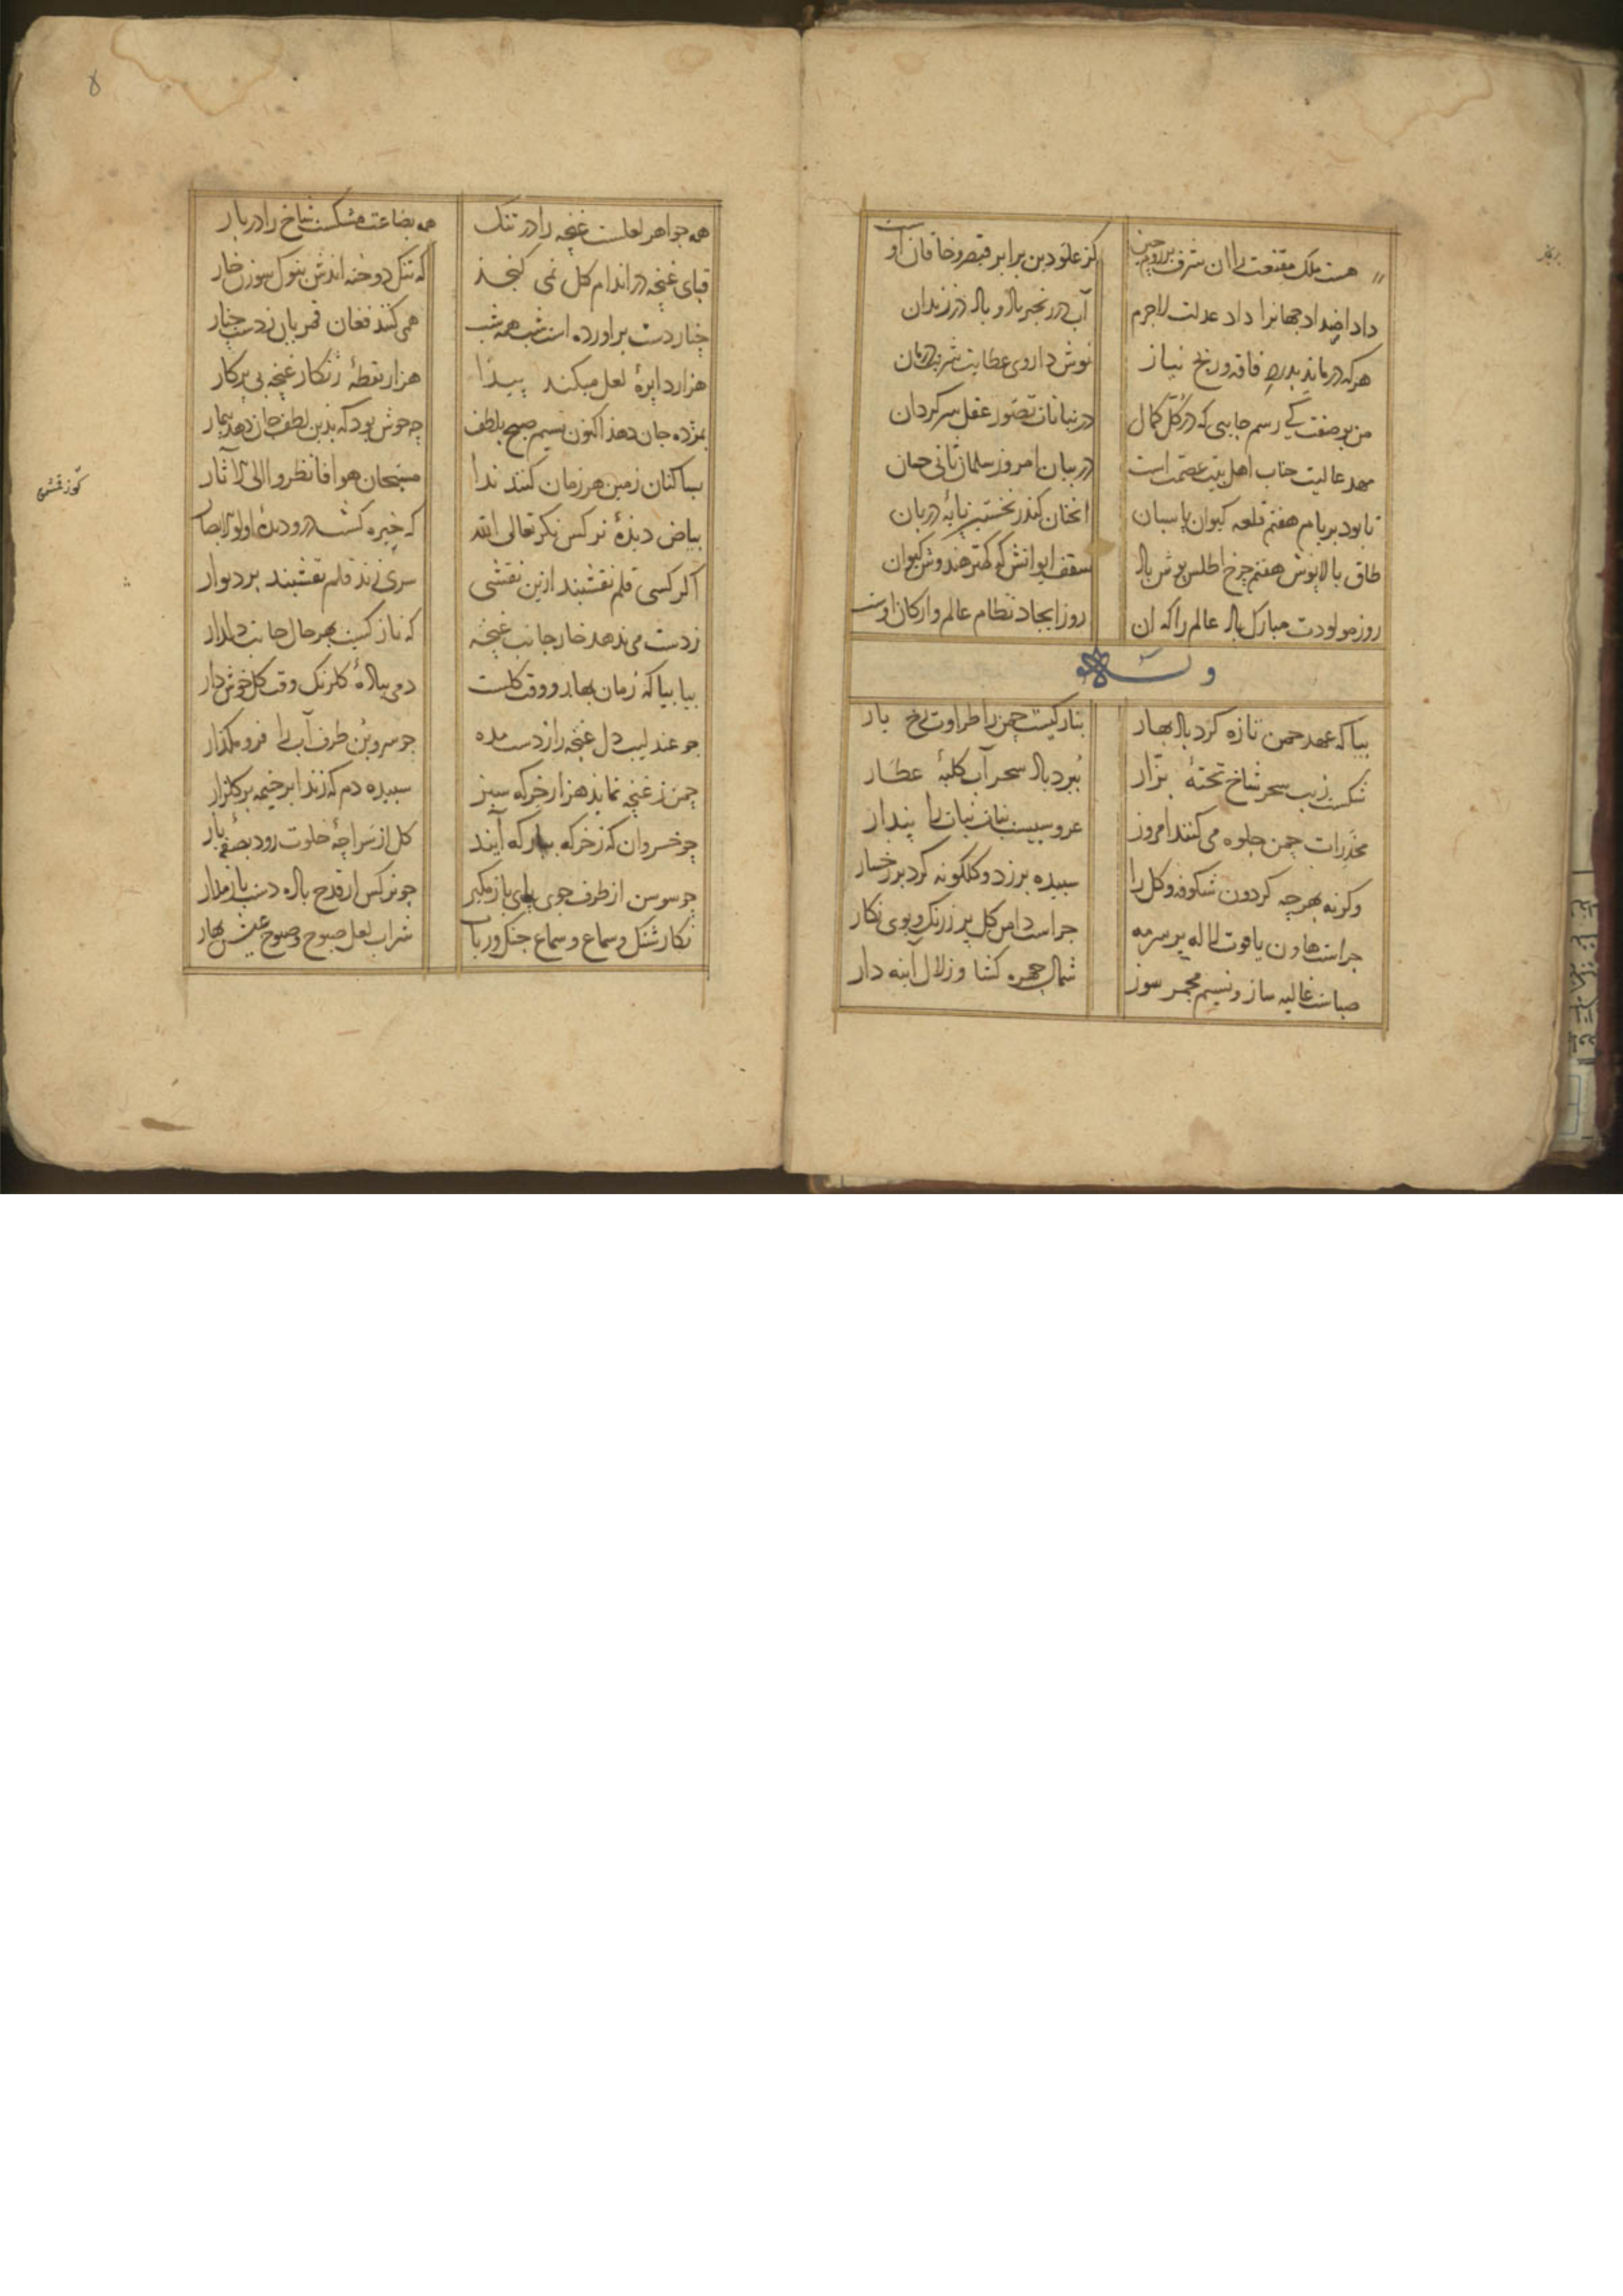 هست ملک مقنعت را ان شرف بر روم و چین
کز علو دین برابر قیصر و خاقان اوست
داد اضداد جهانرا داد عدلت لاجرم
آب در زنجیر باد و باد در زندان
هرکه درماند بدرد فاقه و رنج نیاز
نوش داروی عطایت شربت درمان
من بوصفت کی رسم جایی که در کل کمال
در بیابان تصور عقل سرکردان
مهد عالیت جناب اهل بیت عصمت است
در بیان امروز سلمان ثانی حسان
تا بود بر بام هفتم قلعه کیوان پاسبان
انچنان کاندر نخستین پایه دربان
طاق بالاپوش هفتم چرخ اطلس پوش باد
سقف ایوانش که کمتر هندوش کیوان
روز مولودت مبارک باد عالم را که ان
روز ایجاد نظام عالم و ارکان اوست
وله
بیا که عهد چمن تازه کرد باد بهار
بتارکیست چمن را طراوت رخ یار
شکست زیب سحر شاخ تختهٔ بزّار
ببرد باد سحر آب کلبهٔ عطّار
مخدرات چمن جلوه می کنند امروز
عروسیست نبات نبات را پندار
وکرنه بهر چه کردون شکوفه و کل را
سپیده برزد و کلکونه کرد بر رخسار
چراست هاون یاقوت لاله پر سرمه
چراست دامن کل پر ز رنک و بوی نکار
صباست غالیه ساز و نسیم مجمر سوز
شمال چهره کشا و زلال اینه دار
۸
همه جواهر لعلست غنچه را در تنک
همه بضاعت مشکست شاخ را در بار
قبای غنچه در اندام کل نمی کنجد
که تنک دوخته اندش بنوک سوزن خار
چنار دست براورده است شب همه شب
همی کنند فغان قمریان ز دست چنار
هزار دایرهٔ لعل میکند پیدا
هزار نقطهٔ زنکار غنچه بی پرکار
بمژده جان دهد اکنون نسیم صبح بلطف
چه خوش بود که بدین لطف جان دهد بیمار
بساکنان زمین هر زمان کنند ندا
مسبحان هوا فانظروا الی الآثار
بیاض دیدهٔ نرکس نکر تعالی الله
که خیره کشت درو دیدهٔ اولوالابصار
اکر کسی قلم نقشبند ازین نقشی
سری زند قلم نقشبند بر دیوار
ز دست می ندهد خار جانب غنچه
که نازکیست بهر حال جانب دلدار
بیا بیا که زمان بهار و وقت کلست
دمی پیالهٔ کلرنک وقت کل خوش دار
چو عندلیب دل غنچه را ز دست مده
چو سروبن طرف آب را فرو مکذار
چمن ز غنچه نماید هزار خرکه سبز
سپیده دم که زند ابر خیمه بر کلزار
چو خسروان که ز خرکه ببارکه آیند
کل از سراچهٔ خلوت رود بصفهٔ بار
چو سوسن از طرف جوی پای باز مکیر
چو نرکس از قدح باده دست باز مدار
نکار شنک و سماع و سماع چنک و رباب
شراب لعل صبوح و صبوح عین بهار